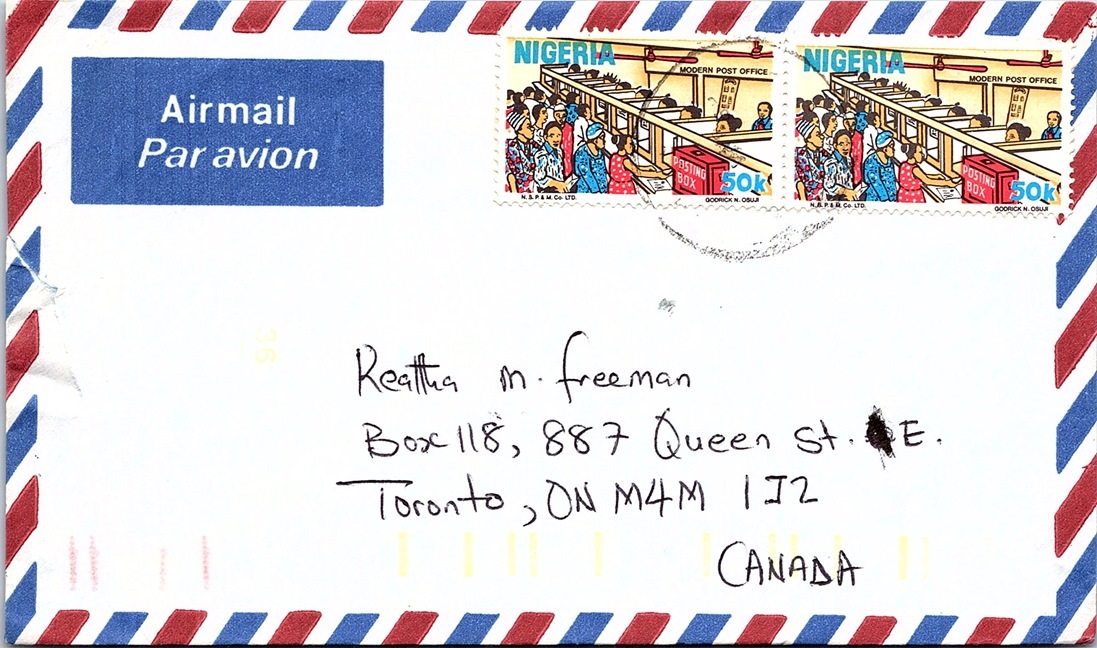 Airmail
Par avion
NIGERIA
MODERN POST OFFICE
POSTING
BOX
50k
N.S.P & M. Co. LTD.
GODRICK N. OSUJI
NIGERIA
MODERN POST OFFICE
POSTING
BOX
50k
N.S.P & M. Co. LTD.
GODRICK N. OSUJI
36
Reattha M. Freeman
Box 118, 887 Queen St. E.
Toronto, ON M4M 1J2
CANADA